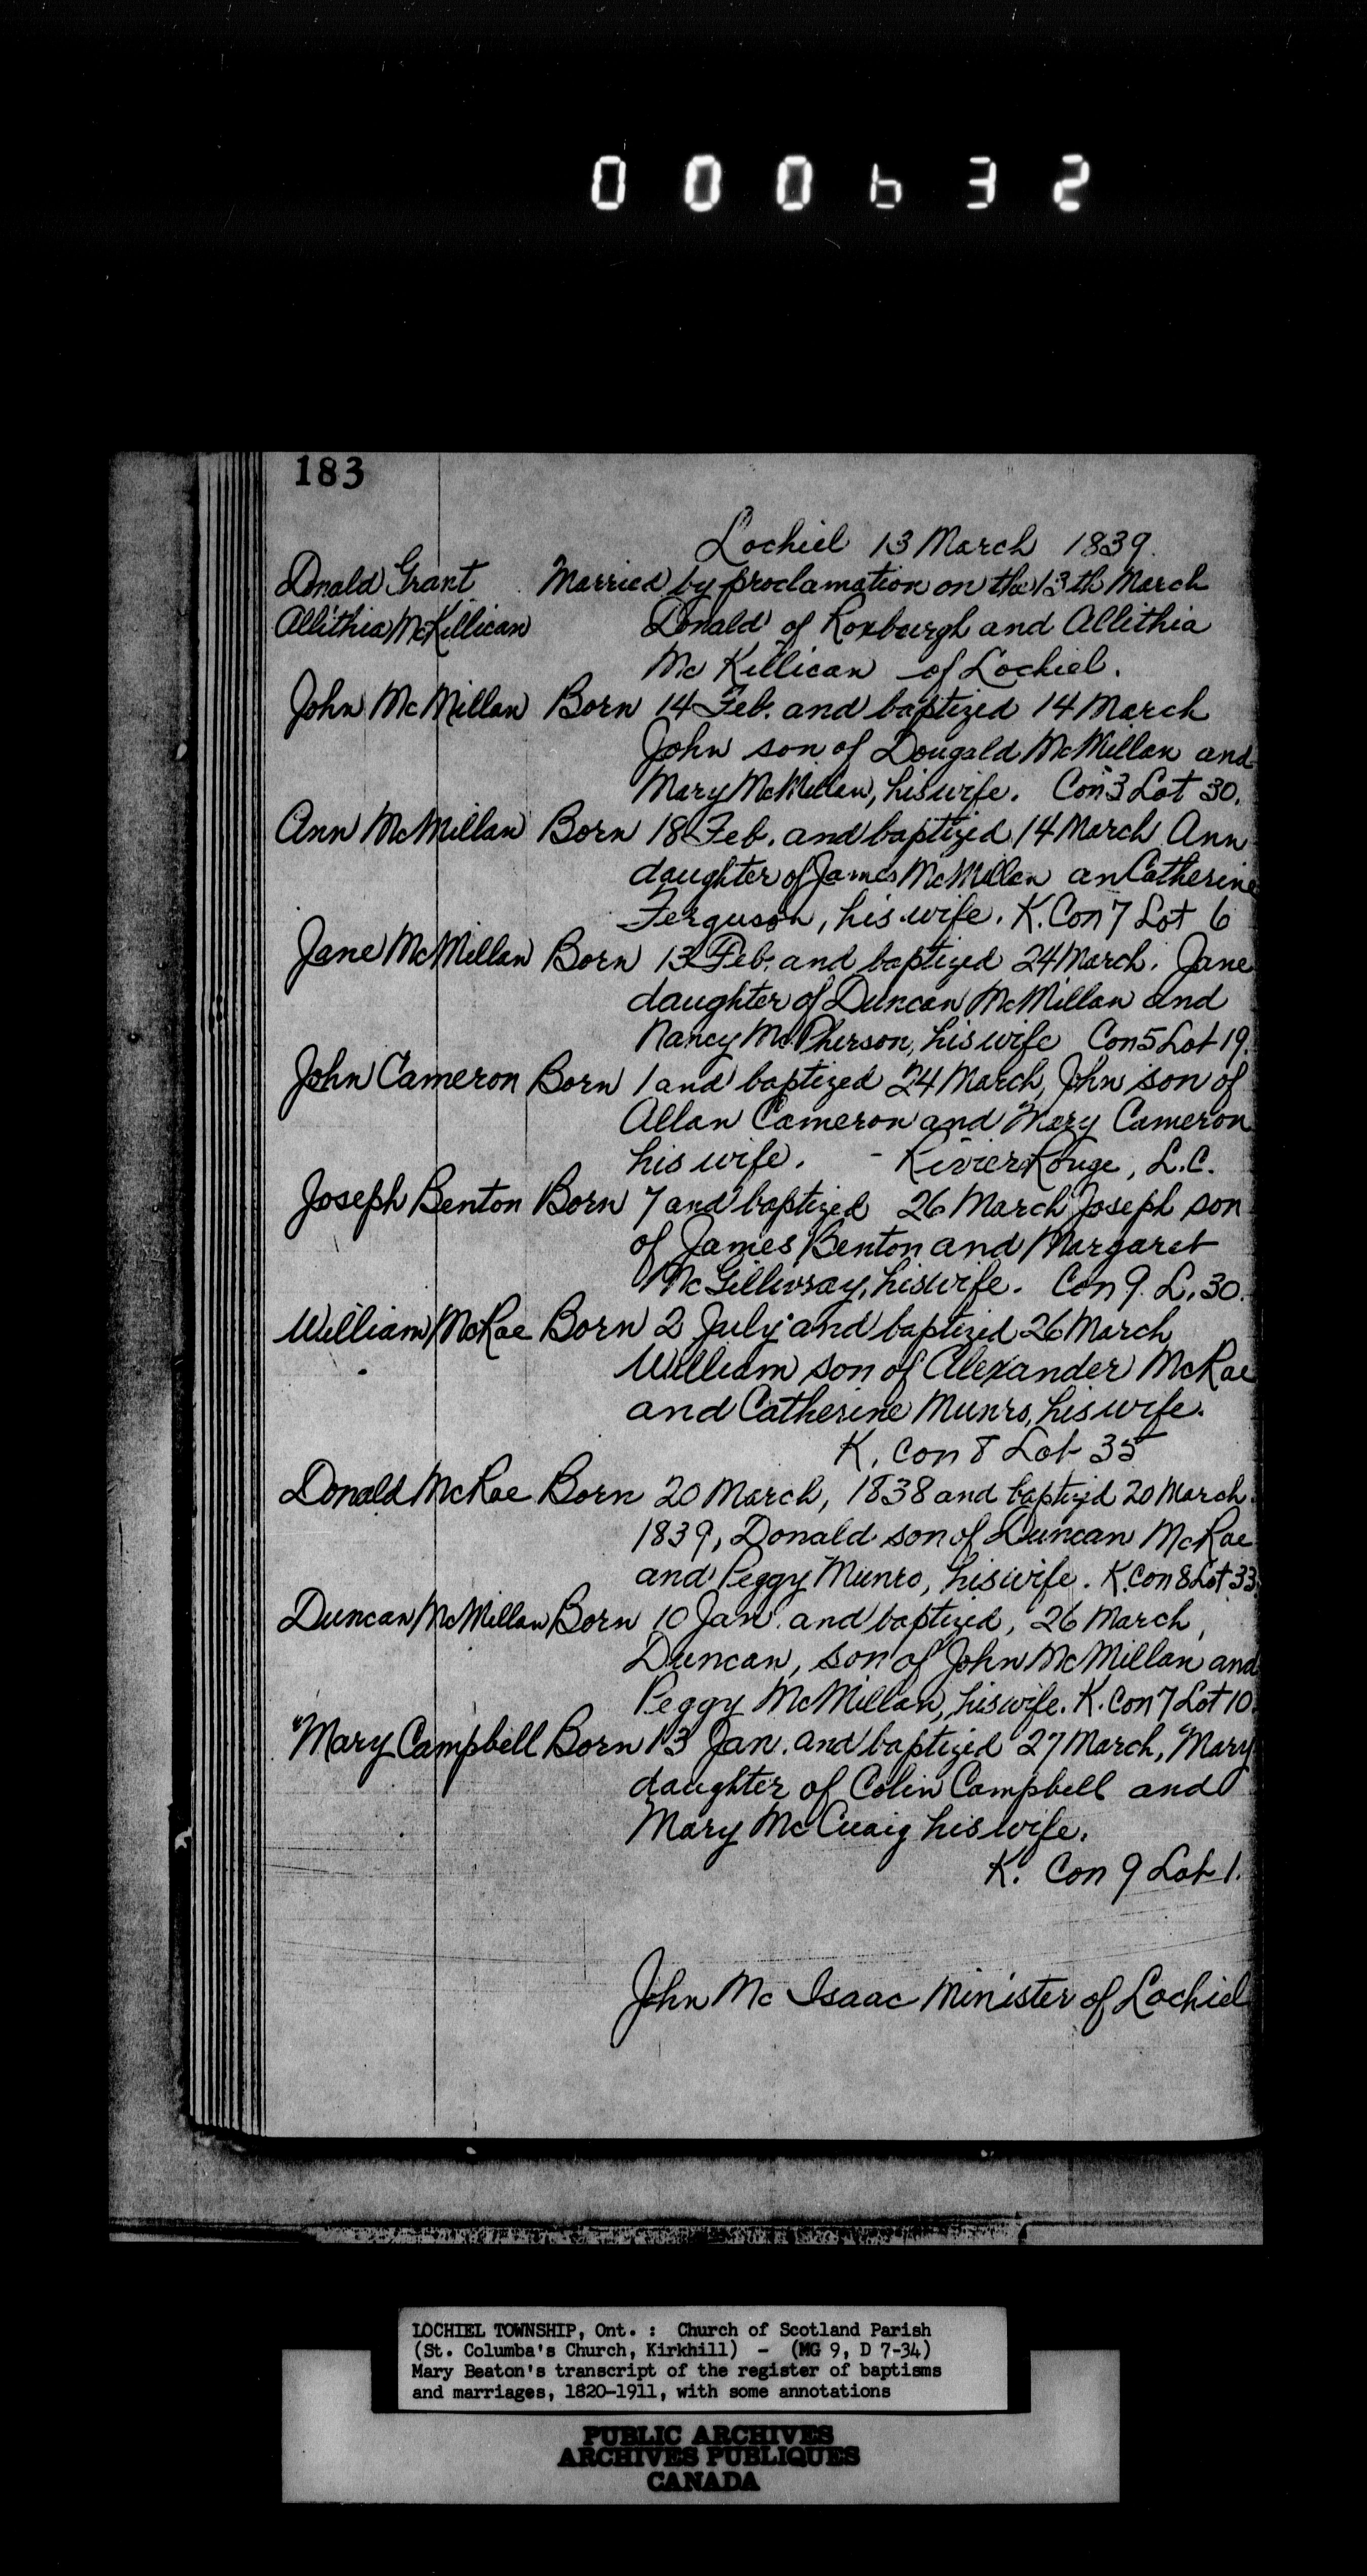 000632
183
Lochiel 13 March 1839.
Donald Grant Married by proclamation on the 13th March
Allithia McKillican Donald of Roxburgh and Allithia
McKillican of Lochiel.
John McMillan Born 14 Feb. and baptized 14 March
John son of Dougald McMillan and
Mary McMillan, his wife. Con 3 Lot 30.
Ann McMillan Born 18 Feb. and baptized 14 March Ann
daughter of James McMillan an Catherine
Ferguson, his wife. K. Con 7 Lot 6
Jane McMillan Born 13 Feb. and baptized 24 March. Jane
daughter of Duncan McMillan and
Nancy McPherson, his wife Con 5 Lot 19.
John Cameron Born 1 and baptized 24 March, John son of
Allan Cameron and Mary Cameron
his wife. - Rivier Rouge, L.C.
Joseph Benton Born 7 and baptized 26 March Joseph son
of James Benton and Margaret
McGillivray, his wife. Con 9. L. 30.
William McRae Born 2 July and baptized 26 March
William son of Alexander McRae
and Catherine Munro, his wife.
K. Con 8 Lot 35
Donald McRae Born 20 March, 1838 and baptized 20 March
1839, Donald son of Duncan McRae
and Peggy Munro, his wife. K. Con 8 Lot 33.
Duncan McMillan Born 10 Jan. and baptized, 26 March,
Duncan, son of John McMillan and
Peggy McMillan, his wife. K. Con 7 Lot 10.
Mary Campbell Born 13 Jan. and baptized 27 March, Mary
daughter of Colin Campbell and
Mary McCuaig his wife.
K. Con 9 Lot 1.
John McIsaac Minister of Lochiel
LOCHIEL TOWNSHIP, Ont. : Church of Scotland Parish
(St. Columba's Church, Kirkhill) - (MG 9, D 7-34)
Mary Beaton's transcript of the register of baptisms
and marriages, 1820-1911, with some annotations
PUBLIC ARCHIVES
ARCHIVES PUBLIQUES
CANADA